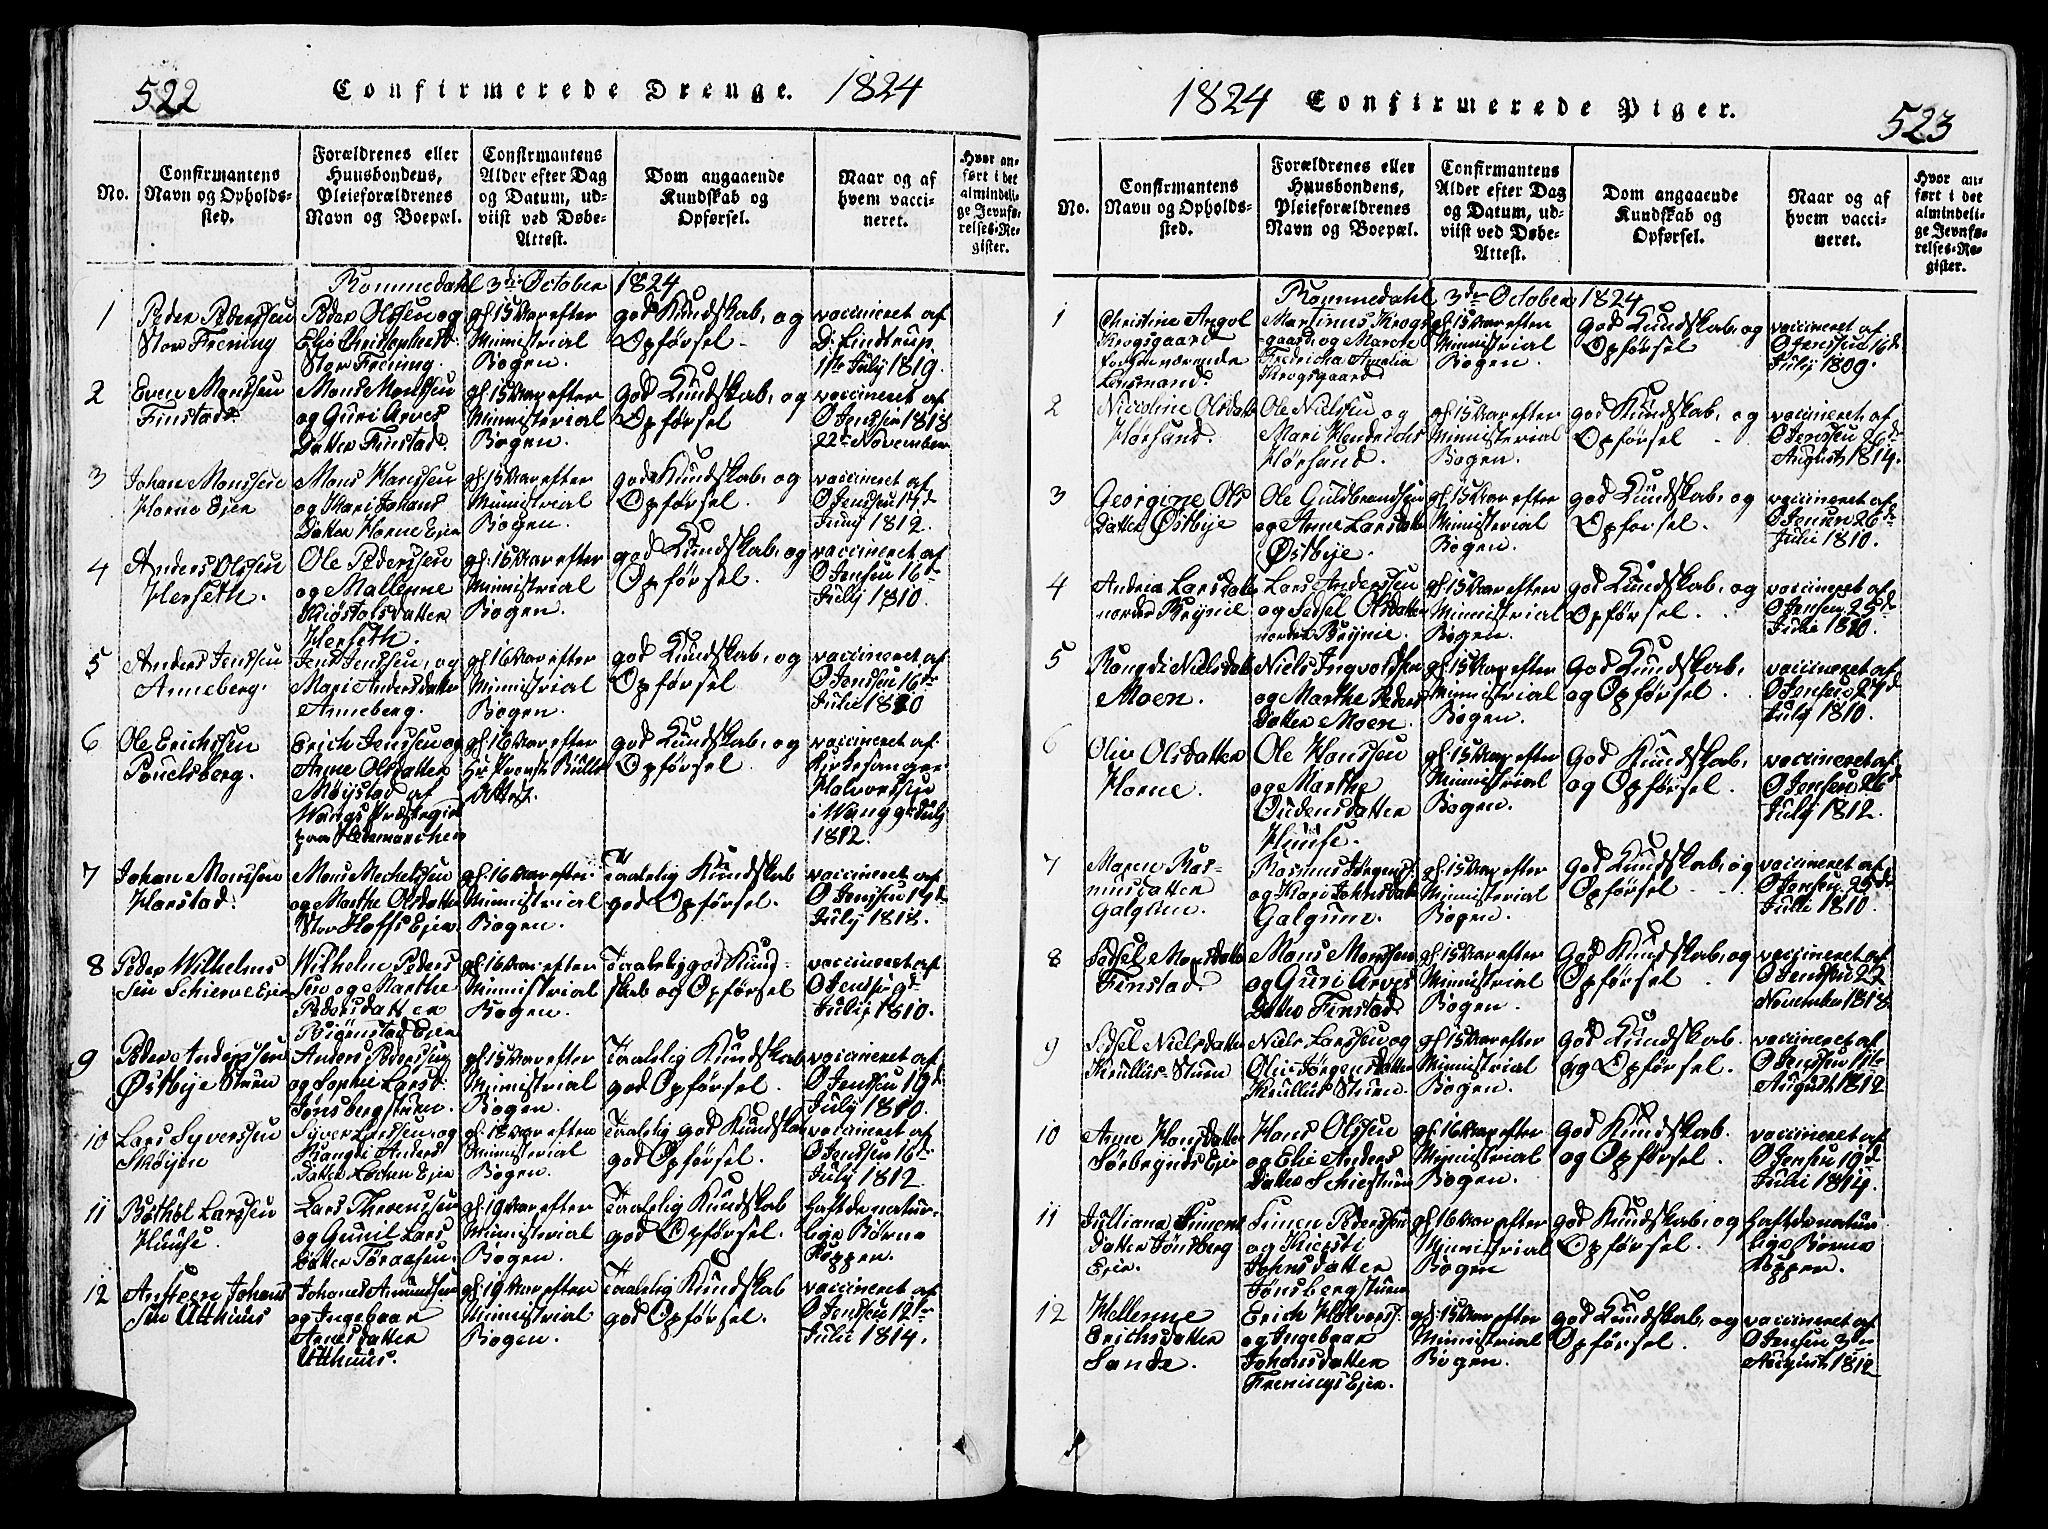 522
Confirmerede Drenge. 1824
No.
Confirmantens
Navn og Opholds-
sted.
Forældrenes eller
Huusbondens,
Pleieforældrenes
Navn og Boepæl.
Confirmantens
Alder efter Dag
og Datum, ud-
viist ved Døbe-
Attest.
Dom angaaende
Kundskab og
Opførsel.
Naar og af
hvem vacci-
neret.
Hvor an-
ført i det
almindeli-
ge Jevnfø-
relses-Re-
gister.
Rommedahl 3die October 1824
1
Peder Pederssen
Stor Frening
Peder Olssen og
Elie Christenhesd:
Stor Frening.
gl: 15 Aar efter
Ministerial
Bogen.
god Kundskab, og
Opførsel
vaccineret af
D: Lindtrup
1ste July 1819.
2
Even Monssen
Finstad
Mons Monssen
og Guri Arves
Datter Finstad.
gl: 15 Aar efter
Ministerial
Bogen.
god Kundskab, og
Opførsel
vaccineret af
O Jenssen 1818
22de November
3
Johan Monssen
Horne Ejer
Mons Hanssen
og Kari Johans
Datter Horne Ejer
gl: 15 Aar efter
Ministrial
Bogen.
god Kundskab, og
Opførsel.
vaccineret af
O Jenssen 17d
Juny 1812.
4
Anders Olssen
Herseth.
Ole Pederssen
og Mallenne
Kiøstolsdatter
Herseth.
gl: 15 Aar efter
Ministrial
Bogen.
god Kundskab, og
Opførsel.
vaccineret af
O Jensen 16de
July 1810.
5
Anders Jenssen
Anneberg.
Jens Jenssen, og
Mari Andersdatter
Anneberg.
gl: 16 Aar efter
Ministrial
Bogen.
god Kundskab, og
Opførsel
vaccineret af
O Jensen 16de
Julii 1810
6
Ole Erichssen
Pouelsberg.
Erich Jenssen og
Anne Olsdatter
Møystad af
Wangs Præstegie
paa Hedemarchen
gl: 16 Aar efter
Hr Provst Bulls
Attest.
god Kundskab, og
Opførsel.
vaccineret af
Kirkesanger
Halvorssen
i Wang 9de July
1812.
7
Johan Monssen
Harstad.
Mons Mechelssen
og Marthe Olsdatter
Stor Hoffs Ejer
gl: 16 Aar efter
Ministrial
Bogen.
Taalelig Kundskab
god Opførsel.
vaccineret af
O Jenssen 19d
July 1818.
8
Peder Wilhelms
sen Schierve Ejer
Wilhelm Peders
sen og Marthe
Pedersdatter
Biønstad Ejer
gl: 16 Aar efter
Ministrial
Bogen.
Taalelig god Kund-
skab og Opførsel
vaccineret af
O Jenssen 9d
Julii 1810.
9
Peder Anderssen
Østbye Stuen
Anders Pederssen
og Sophie Larsd:
Jønsbergstuen.
gl: 15 Aar efter
Ministrial
Bogen.
Taalelig Kundskab
god Opførsel.
vaccineret af
O Jenssen 19d
July 1810.
10
Lars Syverssen
Skøyen
Syver Larssen, og
Rangdi Anders
Datter Lochen Ejer
gl: 18 Aar efter
Ministrial
Bogen.
Taalelig god Kundskab
god Opførsel.
vaccineret af
O Jenssen 16
July 1812.
11
Bøthol Larssen
Huuse.
Lars Thorenssen
og Gunil Lars
Datter Toraasen.
gl: 19 Aar efter
Ministrial
Bogen.
Taalelig Kundskab
god Opførsel.
hafde natur-
lige Børne
Kopper.
12
Ansteen Johans
sen Utthuus
Johanes Amundssen
og Ingebaar
Arnesdatter
Utthuus.
gl: 19 Aar efter
Ministrial
Bogen.
Taalelig Kundskab
god Opførsel.
vaccineret af
O Jenssen 12te
Julii 1814.
1824 Confirmerede Piger.
523
No.
Confirmantens
Navn og Opholds-
sted.
Forældrenes eller
Huusbondens,
Pleieforældrenes
Navn og Boepæl.
Confirmantens
Alder efter Dag
og Datum, ud-
viist ved Døbe-
Attest.
Dom angaaende
Kundskab og
Opførsel.
Naar og af
hvem vacci-
neret.
Hvor an-
ført i det
almindeli-
ge Jevnfø-
relses-Re-
gister.
Rommedahl 3die October 1824
1
Christine Angol
Krogsgaard
forhenværende
Lensmand.
Martinus Krogs
-gaard, og Marthe
Fredricha Amalia
Krogsgaard
gl: 15 Aar efter
Ministerial
Bogen.
god Kundskab, og
Opførsel
vaccineret af
O Jenssen 16d
July 1809.
2
Niccoline Olsdatter
Hørsand.
Ole Nielssen og
Mari Hendrichs
Hørsand.
gl: 15 Aar efter
Ministerial
Bogen.
god Kundskab, og
Opførsel
vaccineret af
O Jenssen 26d
August 1814.
3
Georgine Ols
Datter Østbye
Ole Guldbrandsen
og Anne Larsdatter
Østbye.
gl: 15 Aar efter
Ministrial
Bogen.
god Kundskab, og
Opførsel.
vaccineret af
O Jensen 26d
Julii 1810.
4
Andria Larsdatter
nordre Bryne
Lars Anderssen
og Sedsel Olsdatter
nordre Bryne.
gl: 15 Aar efter
Ministrial
Bogen.
god Kundskab, og
Opførsel.
vaccineret af
O Jensen 25d
Julii 1810.
5
Rangdi Nielsdatter
Moen.
Niels Ingvoldsen
og Marthe Peders
Datter Moen.
gl: 15 Aar efter
Ministrial
Bogen.
god Kundskab,
og Opførsel.
vaccineret af
O Jensen 27d
July 1810.
6
Oliv Olsdatter
Horne.
Ole Hanssen
og Marthe
Oudensdatter
Huuse.
gl: 15 Aar efter
Ministrial
Bogen.
god Kundskab,
og Opførsel.
vaccineret af
O Jenssen 26
July 1812.
7
Maren Ras-
musdatter
Galgum.
Rasmus Jørgens:
og Kari Johnsdatter
Galgum.
gl: 15 Aar efter
Ministrial
Bogen.
god Kundskab, og
Opførsel
vaccineret af
O Jenssen 25d
Julii 1810.
8
Sedsel Monsdatter
Finstad.
Mons Monssen
og Guri Arves
Datter Finstad.
gl: 15 Aar efter
Ministrial
Bogen.
God Kundskab, og
Opførsel.
vaccineret af
O Jenssen 22
November 1818.
9
Sidsel Nielsdatter
Krullius-Stuen
Niels Larssen og
Olia Jørgensdatter
Krullius Stuen.
gl: 15 Aar efter
Ministrial
Bogen.
God Kundskab.
og Opførsel.
vaccineret af
O Jenssen 11te
August 1812
10
Anne Hansdatter
Sørbrynds Ejer
Hans Olssen
og Elie Anders
Datter Schiestuen
gl: 16 Aar efter
Ministrial
Bogen.
God Kundskab.
og Opførsel.
vaccineret af
O Jensen 19d
Julii 1814.
11
Julliana Simens
datter Jønsberg
Ejer.
Simen Pederssen
og Kiersti
Johnsdatter
Jønsbergstuen
gl: 16 Aar efter
Ministrial
Bogen
god Kundskab, og
Opførsel.
hafde natur
lige Børne
Kopper.
12
Hellenne
Erichsdatter
Sande.
Erich Halvors:
og Ingebaar
Johansdatter
Frenings Ejer.
gl: 15 Aar efter
Ministrial
Bogen.
god Kundskab, og
Opførsel.
vaccineret af
O Jensen 3die
August 1812